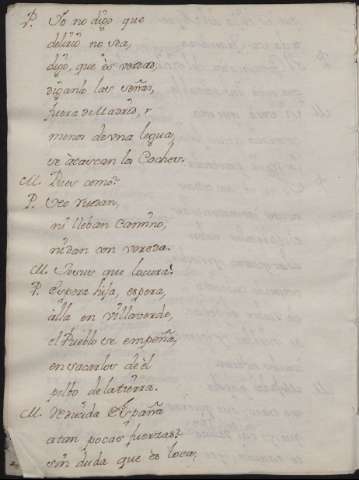 P. Yo no digo que
delirio no sea,
digo, que es verdad,
diganlo las señas,
fuera de Madrid, y
menos de una legua,
se atascan los Coches.
M. Pues como?
P. Uso ruedan,
ni lleban camino,
ni dan con vereda.
M. Jesus que locura!
P. Espera hija, espera,
alla en Villaverde,
el Pueblo se empeña,
en sacarlos de el
pelto de la tierra.
M. Reducida España
a tan pocas fuerzas?
sin duda que es loca,